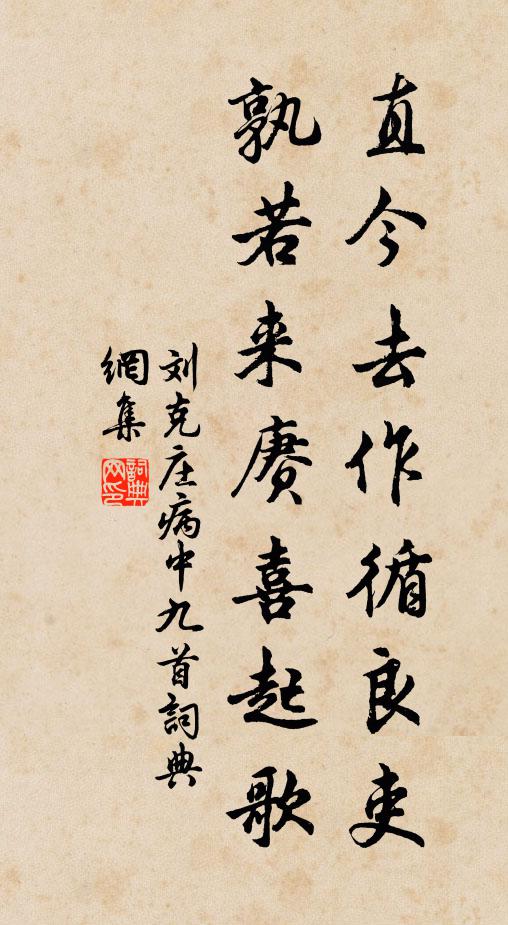 直今去作循良吏
孰若来赓喜起歌
刘克庄病中九首詞典
網集
詞典
网印